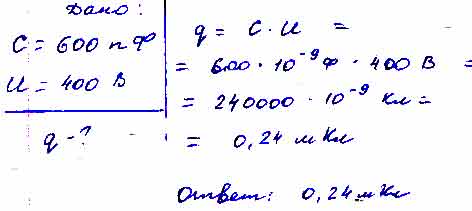 Дано:
C = 600 пФ
U = 400 В
q - ?
q = C · U =
= 600 · 10⁻⁹ Ф · 400 В =
= 240000 · 10⁻⁹ Кл =
= 0,24 мКл
Ответ: 0,24 мКл